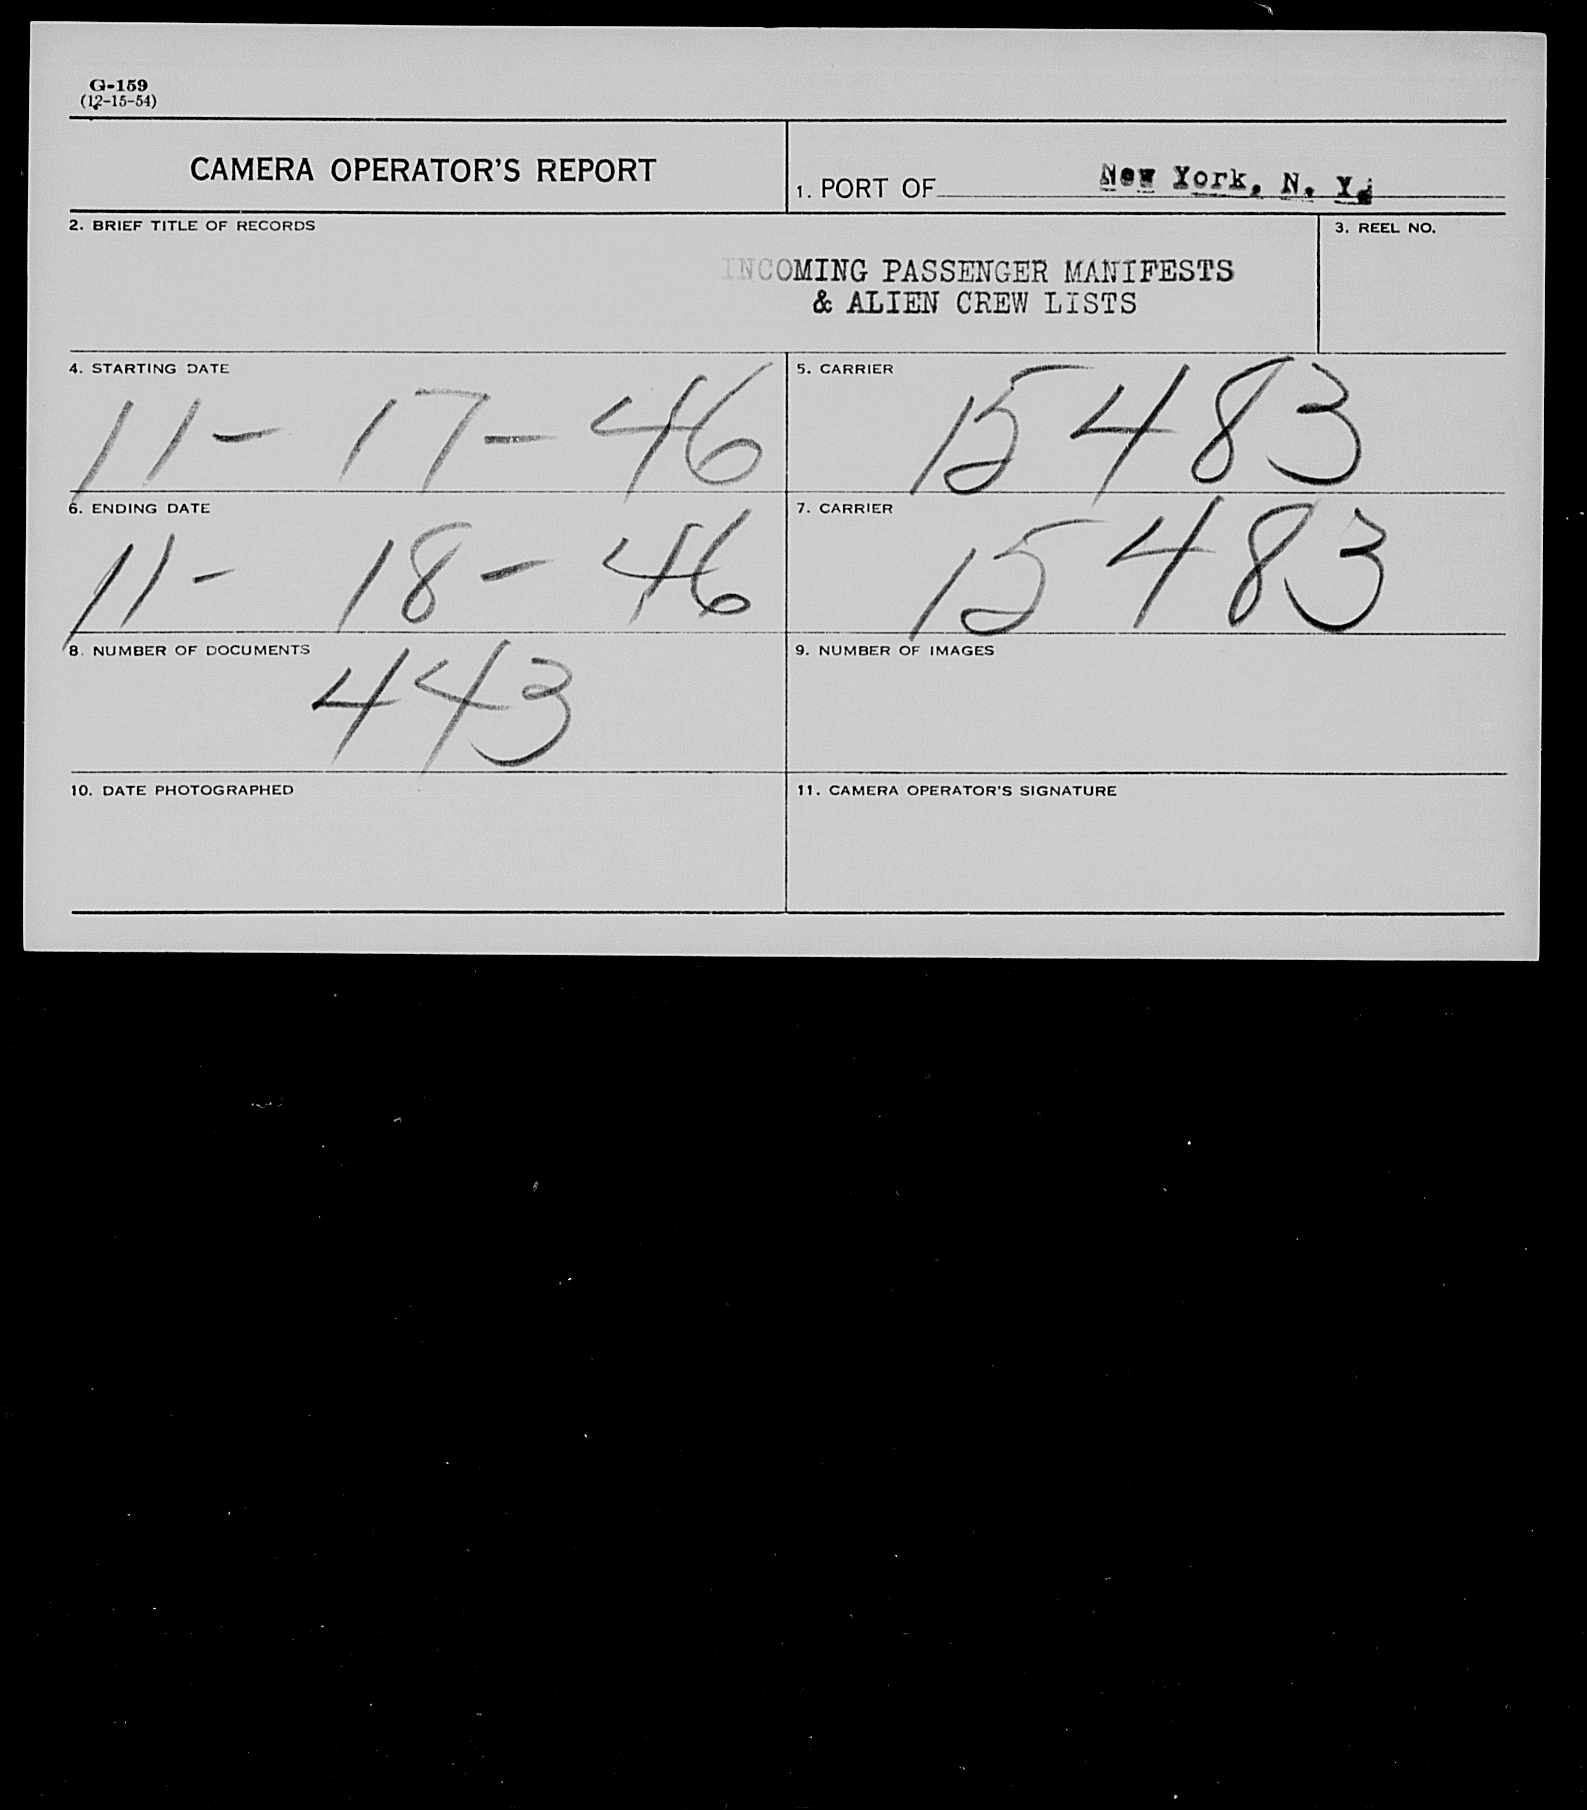 G-159
(12-15-54)
CAMERA OPERATOR'S REPORT
1. PORT OF New York, N. Y.
2. BRIEF TITLE OF RECORDS
INCOMING PASSENGER MANIFESTS
& ALIEN CREW LISTS
3. REEL NO.
4. STARTING DATE
11-17-46
5. CARRIER
15483
6. ENDING DATE
11-18-46
7. CARRIER
15483
8. NUMBER OF DOCUMENTS
443
9. NUMBER OF IMAGES
10. DATE PHOTOGRAPHED
11. CAMERA OPERATOR'S SIGNATURE